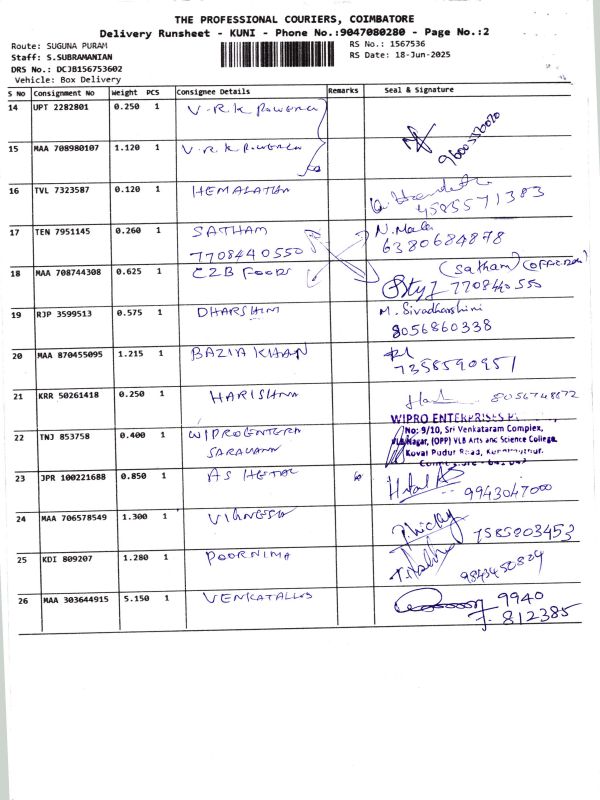 THE PROFESSIONAL COURIERS, COIMBATORE
Delivery Runsheet - KUNI - Phone No.:9047080280 - Page No.:2
Route: SUGUNA PURAM RS No.: 1567536
Staff: S.SUBRAMANIAN RS Date: 18-Jun-2025
DRS No.: DCJB156753602
Vehicle: Box Delivery
S No Consignment No Weight PCS Consignee Details Remarks Seal & Signature
14 UPT 2282801 0.250 1 V.R.K Powerea
9600512020
15 MAA 708980107 1.120 1 V.R.K Powerea
16 TVL 7323587 0.120 1 HEMALATHA
4585571383
17 TEN 7951145 0.260 1 SATHAM N. Mala
7708440550 6380684878
18 MAA 708744308 0.625 1 EZB Foods (Satham)
7708440550
19 RJP 3599513 0.575 1 DHARSHINI M. Sivadharshini
8056860338
20 MAA 870455095 1.215 1 BAZIA KHAN
7358590951
21 KRR 50261418 0.250 1 HARISHNA 8056748672
22 TNJ 853758 0.400 1 WIPRO ENTERA WIPRO ENTERPRISES
SARAVANN No: 9/10, Sri Venkataram Complex,
VLB Nagar, (OPP) VLB Arts and Science College,
Kovai Pudur Road,
23 JPR 100221688 0.850 1 AS HETAL
9943047000
24 MAA 706578549 1.300 1 VIGNESH
7585803453
25 KDI 809207 1.280 1 POORNIMA
26 MAA 303644915 5.150 1 VENKATALLUS 9940
812385